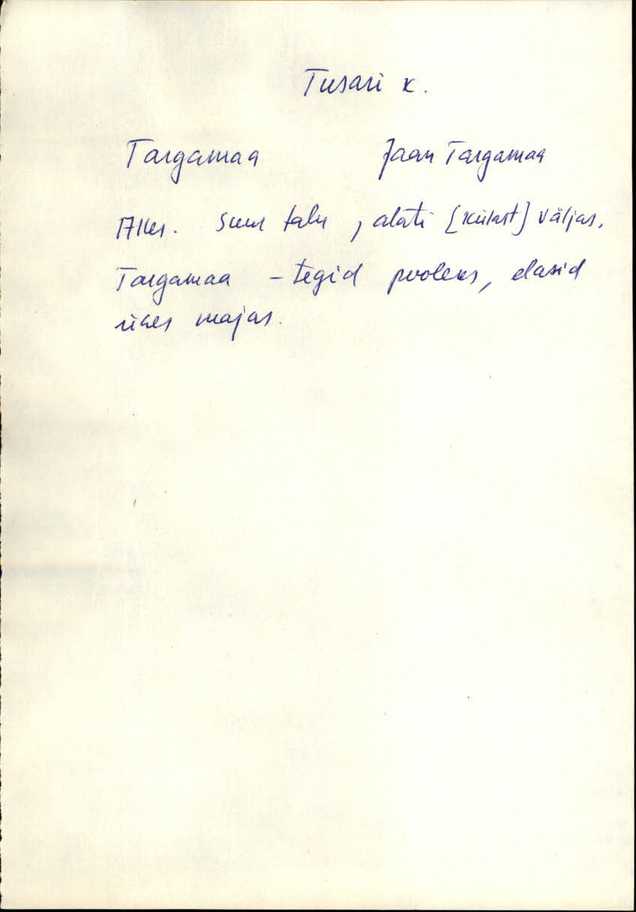 Tusari k.
Targamaa Jaan Targamaa
suur talu, alati [külast] väljas.
Targamaa - tegid pooleks, elasid
ühes majas.